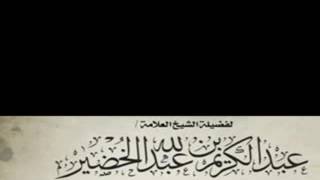 لفضيلة الشيخ العلامة /
عبد الكريم بن عبد الله الخضير